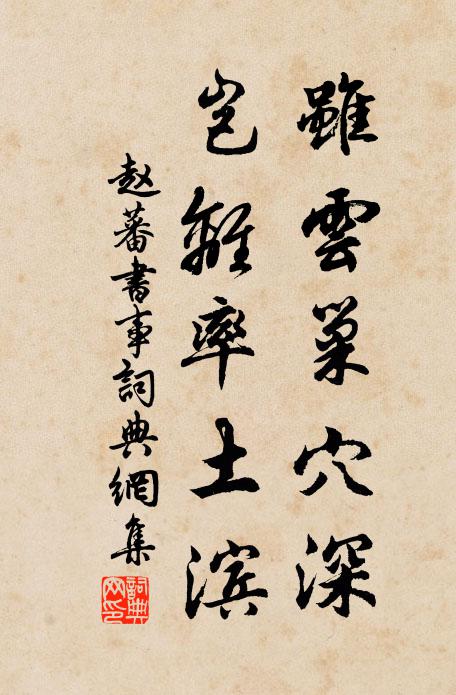 雖雲巢穴深
豈離率土滨
赵蕃書事詞典網集